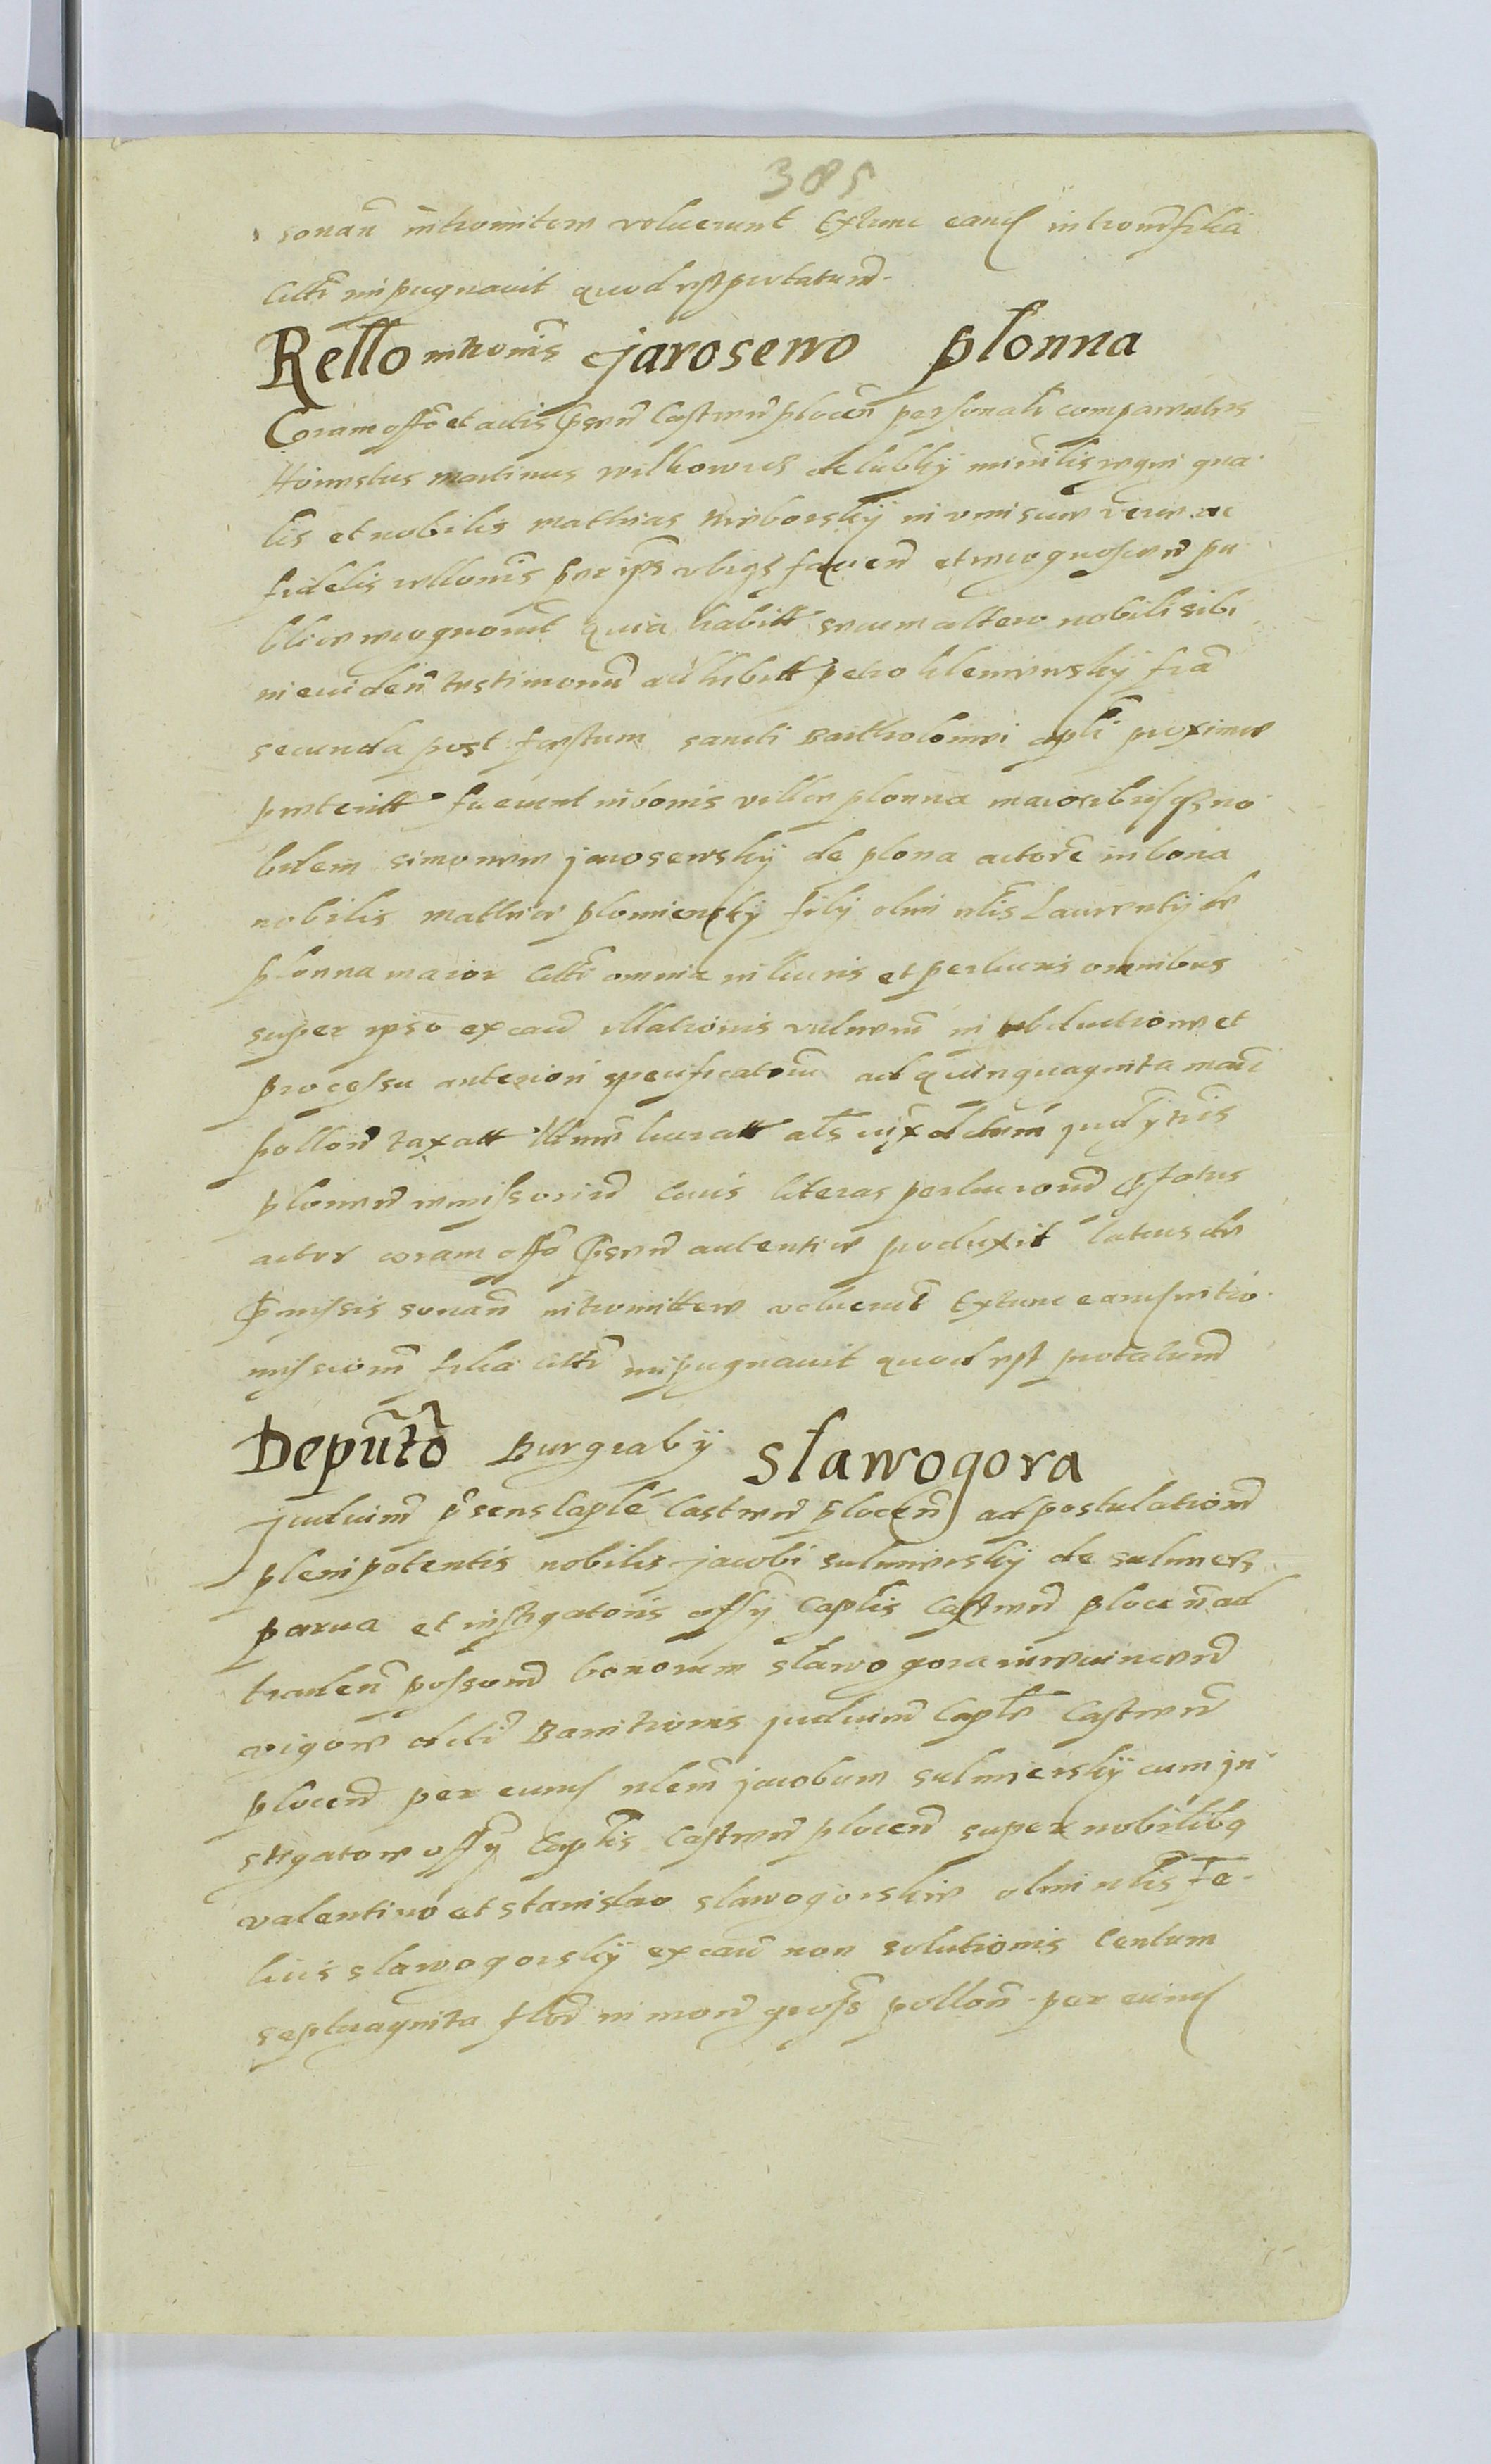 385
sonan intromitere voluerunt Extunc eand intromis filia
Citti impugnavit quod est protatum.
Rello intronis Jarosewo Plonna
Coram offo et actis psen Castren plocen personalr comparentes
Honestus Martinus wilkowies de lubky minrlis regni gna
lis et nobilis Mathias in vim suae verae ac
fidelis rellonis per ipsos ubiq facien et recognoscen pu
blice recognornt Quia habitt secum altero nobili sibi
in euiden testimoniu adhibitt petro fria
secunda post festum sancti Bartholomei apli proxime
preteritt fuerunt in bonis villae plonna maioribusq no
bilem simonem jarosewsky de plona actore in bona
nobilis Mathiae plomiensky filij olim nlis Laurentij de
plonna maior Citti omnia in lucris et perlucris omnibus
super ipso ex cau illationis vulnerum in obductione et
processu anteriori specificatorum ad quinquaginta marc
pollon taxatt lucratt als juxta decretum judij tris
plocen remissorium cuius literas perlucronu pfatus
actor coram offo psen autentice produxit latius de
pmissis sonan intromittere voluerut Extunc eand intro
missionem filia Citti impugnavit quod est protatum
Deputo Burgraby Slawogora
judicium psens Caple Castren plocen ad postulationem
plenipotentis nobilis jacobi sulmiersky de sulmers
parua et instigatoris offy Caplis Castren plocen ad
traden possonem bonorum slawogora
vigore decti Banitionis judicium Caple Castren
plocen per eund nlem jacobum sulmiersky cum jn
stigatore offy Caplis Castren plocen super nobilibq
valentino et stanislao slawogorskie olim nlis fe
licis slawogorsky ex cau non solutionis Centum
septuaginta flor in mon gross pollon per eund